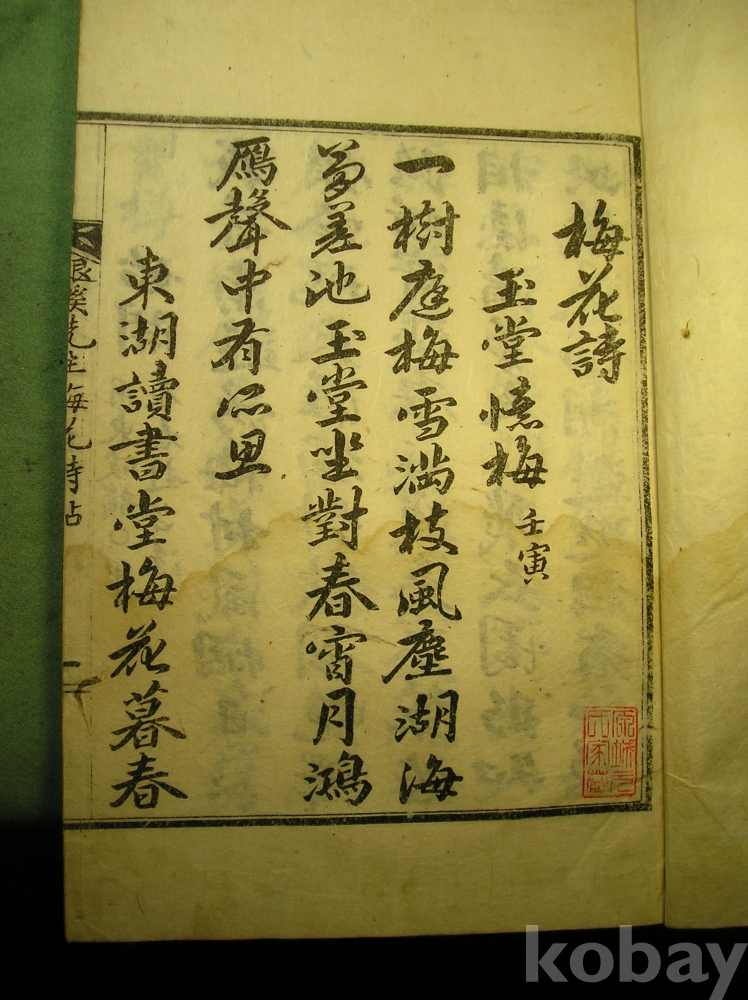 梅花詩
玉堂憶梅 壬寅
一樹庭梅雪滿枝風塵湖海
夢差池玉堂坐對春宵月鴻
鴈聲中有所思
東湖讀書堂梅花暮春
退溪先生梅花詩帖
一
kobay